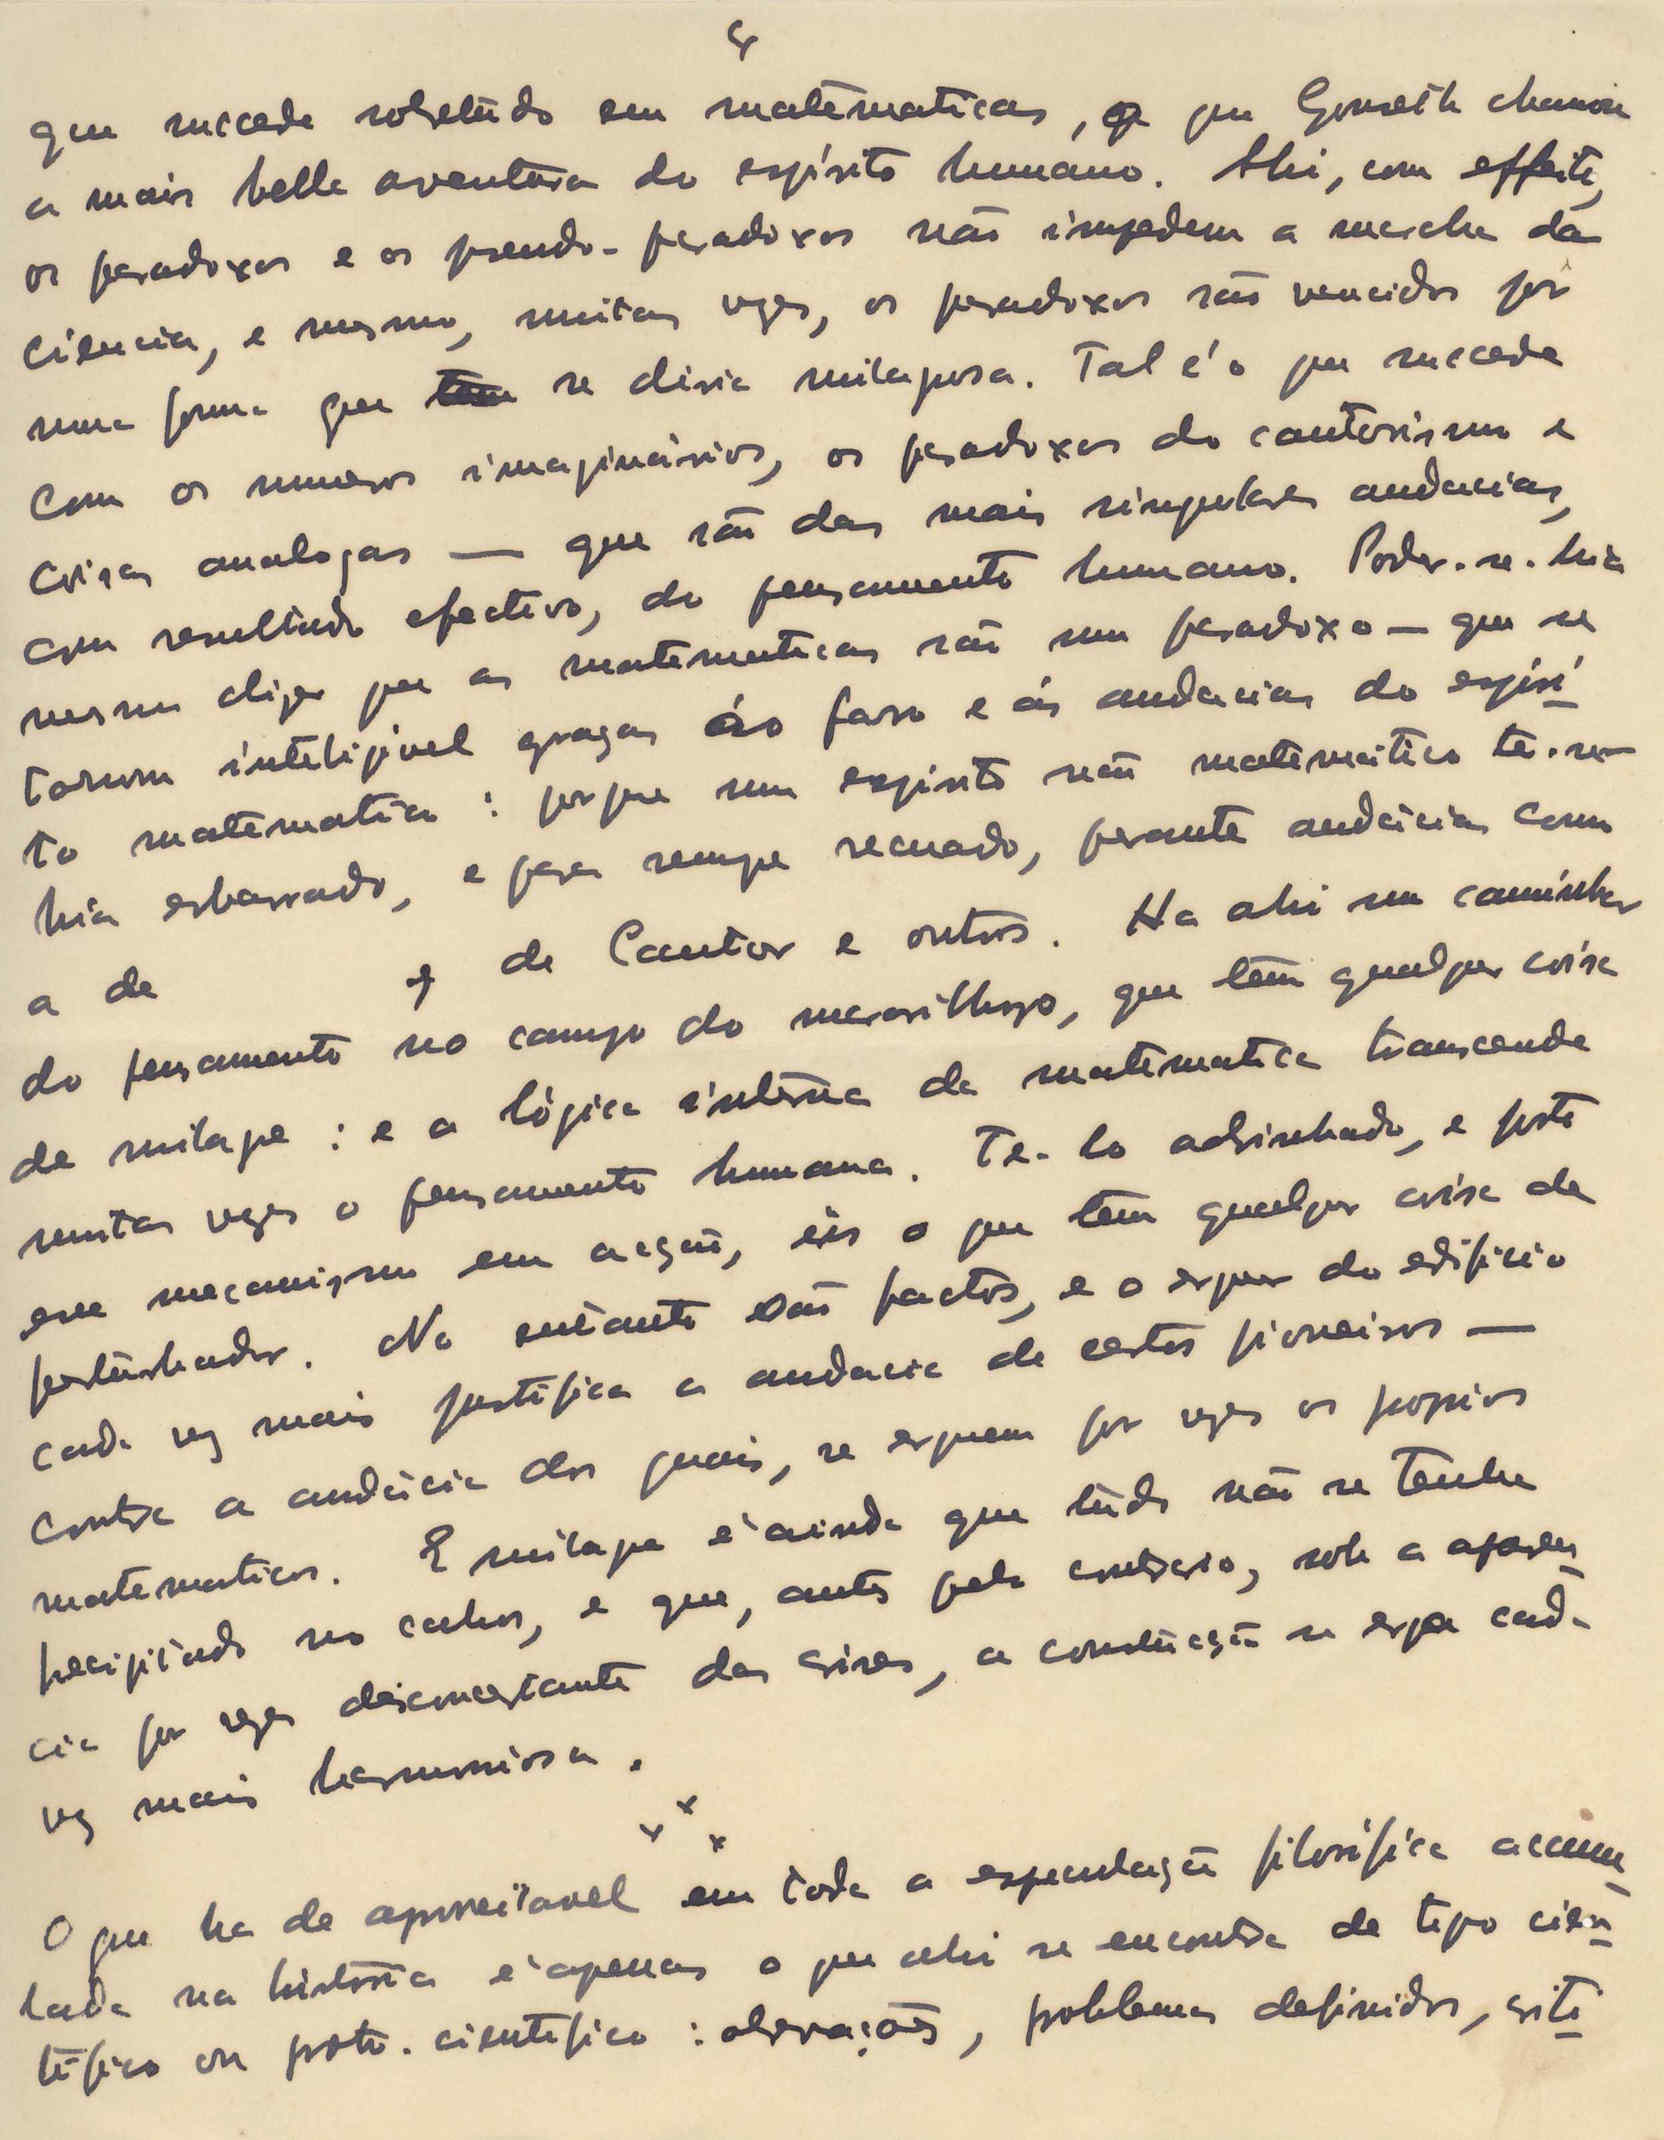 que succede sobretudo em matematicas, o que Gonseth chamou
a mais bella aventura do espírito humano. Ahi, com effeito,
os paradoxos e os pseudo-paradoxos não impedem a marcha da
ciencia, e mesmo, muitas vezes, os paradoxos são vencidos por
uma forma que se diria milagrosa. Tal é o que succede
com os numeros imaginários, os paradoxos do cantorismo e
coisas analogas — que são das mais singulares audacias,
com resultado efectivo, do pensamento humano. Poder-se-hia
mesmo dizer que as matematicas são um paradoxo — que se
tornou inteligivel graças ao faro e ás audacias do espiri
to matematico: porque um espirito não matemático te-se-
hia esbarrado, e para sempre recuado, perante audácias como
a de e de Cantor e outros. Ha ahi um caminhar
do pensamento no campo do maravilhoso, que tem qualquer coisa
de milagre: e a lógica interna da matematica transcende
muitas vezes o pensamento humano. Te-lo adivinhado, e posto
esse mecanismo em acção, eis o que tem qualquer coisa de
perturbador. No entanto são factos, e o erguer do edificio
cada vez mais justifica a audacia de certos pioneiros —
contra a audácia dos quais, se erguem por vezes os proprios
matematicos. E milagre é ainda que tudo não se tenha
precipitado no cahos, e que, antes pelo contrario, sob a aparen
cia por vezes desconcertante das crises, a construcção se erga cada
vez mais harmoniosa.
x x x
O que ha de aproveitavel em toda a especulação filosófica accumu
lada na história é apenas o que ahi se encontra de tipo cien
tifico ou proto-cientifico: observações, problemas definidos, criti